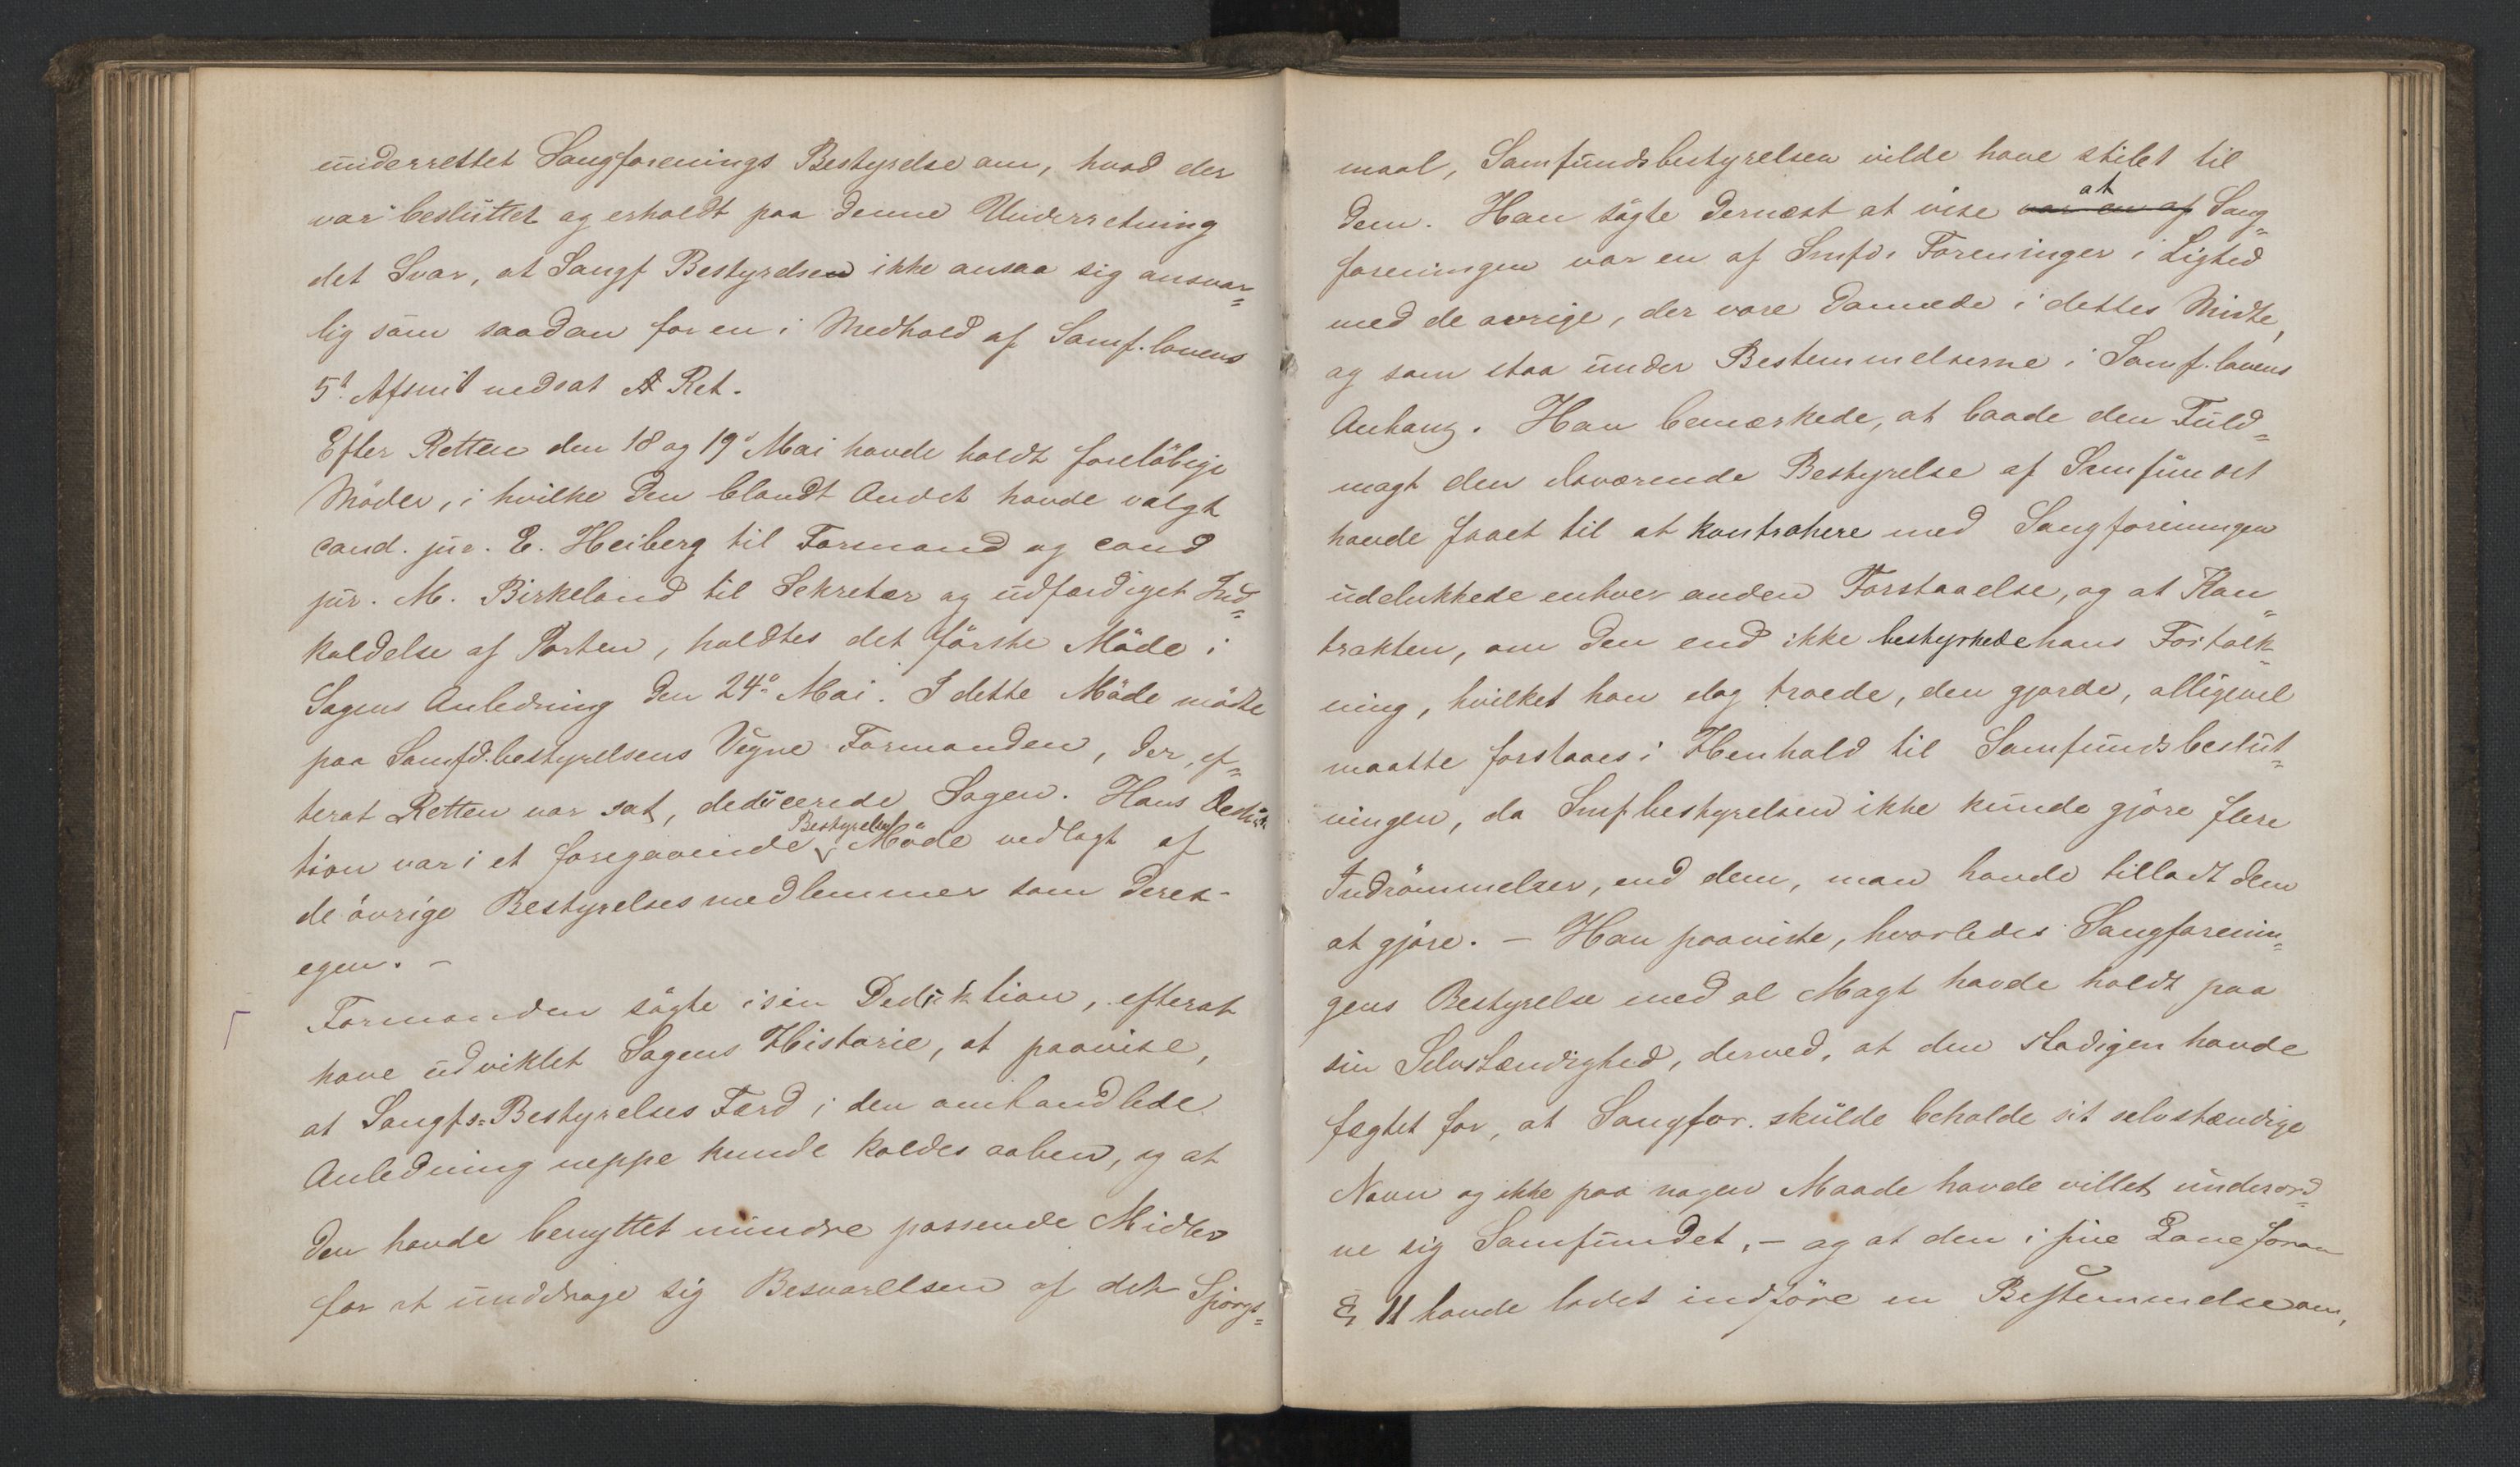 underrettet Sangforenings Bestyrelse om, hvad der
var besluttet og erholdt paa denne Underretning
det Svar, at Sangf Bestyrelsen ikke ansaa sig ansvar=
lig som saadan for en i Medhold af Samf.lovens
5t Afsnit nedsat Ret.
Efter Retten den 18 og 19d Mai havde holdt foreløbige
Møder, i hvilke den blandt Andet havde valgt
cand. jur. E. Heiberg til Formand og cand
jur. M. Birkeland til Sekretær og udfærdiget Ind=
kaldelse af Parten, holdtes det første Møde i
Sagens Anledning den 24de Mai. I dette Møde mødte
paa Samfd.bestyrelsens Vegne Formanden, der, ef=
terat Retten var sat, deducerede Sagen. Hans Deduk
tion var i et foregaaende Bestyrelses Møde vedtagt af
de øvrige Bestyrelsesmedlemmer som deres
egen. –
Formanden søgte i sin Deduktion, efterat
have udviklet Sagens Historie, at paavise,
at Sangfs=Bestyrelses Færd i den omhandlede
Anledning neppe kunde kaldes aaben, og at
den havde benyttet mindre passende Midler
for at unddrage sig Besvarelsen af det Spørgs=
maal, Samfundsbestyrelsen vilde have stilet til
dem. Han søgte dernæst at vise var en af at Sang=
foreningen var en af Smfds Foreninger i Lighed
med de øvrige, der vare dannede i dettes Midte,
og som staa under Bestemmelserne i Samf.lovens
Anhang. Han bemærkede, at baade den Fuld=
magt den daværende Bestyrelse af Samfundet
havde faaet til at kontrahere med Sangforeningen
udelukkede enhver anden Forstaaelse, og at Kon=
trakten, om den end ikke bestyrkede hans Fortolk=
ning, hvilket han dog troede, den gjorde, alligevel
maatte forstaaes i Henhold til Samfundsbeslut=
ningen, da Smfbestyrelsen ikke kunde gjøre flere
Indrømmelser, end dem, man havde tilladt dem
at gjøre. – Han paaviste, hvorledes Sangforenin=
gens Bestyrelse med al Magt havde holdt paa
sin Selvstændighed, derved, at den stadigen havde
fægtet for, at Sangfor. skulde beholde sit selvstændige
Navn og ikke paa nogen Maade havde villet underord=
ne sig Samfundet, – og at den i sine Love foran
§ 11 havde ladet indføre en Bestemmelse om,